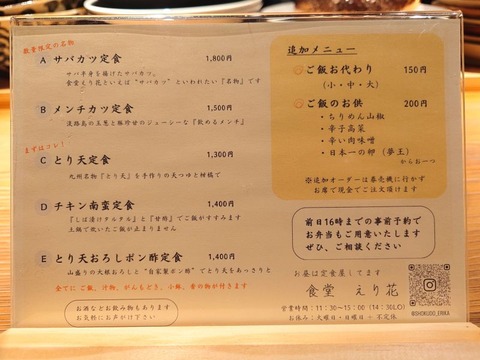 数量限定の名物
A サバカツ定食 1,800円
サバ半身を揚げたサバカツ。
食堂えり花といえば“サバカツ”といわれたい『名物』です
B メンチカツ定食 1,500円
淡路島の玉葱と豚珍甘のジューシーな『飲めるメンチ』
まずはコレ！
C とり天定食 1,300円
九州名物『とり天』を手作りの天つゆと柑橘で
D チキン南蛮定食 1,400円
『しば漬けタルタル』と『甘酢』でご飯がすすみます
土鍋で炊いたご飯が止まりません
E とり天おろしポン酢定食 1,400円
山盛りの大根おろしと“自家製ポン酢”でとり天をあっさりと
全てに ご飯、汁物、がんもどき、小鉢、香の物が付きます
お酒などお飲み物もあります
お気軽にお声がけ下さい
追加メニュー
ご飯お代わり 150円
（小・中・大）
ご飯のお供 200円
・ちりめん山椒
・辛子高菜
・辛い肉味噌
・日本一の卵（夢王）
からおーつ
※追加オーダーは券売機に行かず
お席で現金でご注文頂けます
前日16時までの事前予約で
お弁当もご用意いたします
ぜひ、ご相談ください
お昼は定食屋してます
食堂 えり花
営業時間：11:30～15:00（14:30LO）
お休み：火曜日・日曜日 + 不定休
@SHOKUDO_ERIKA